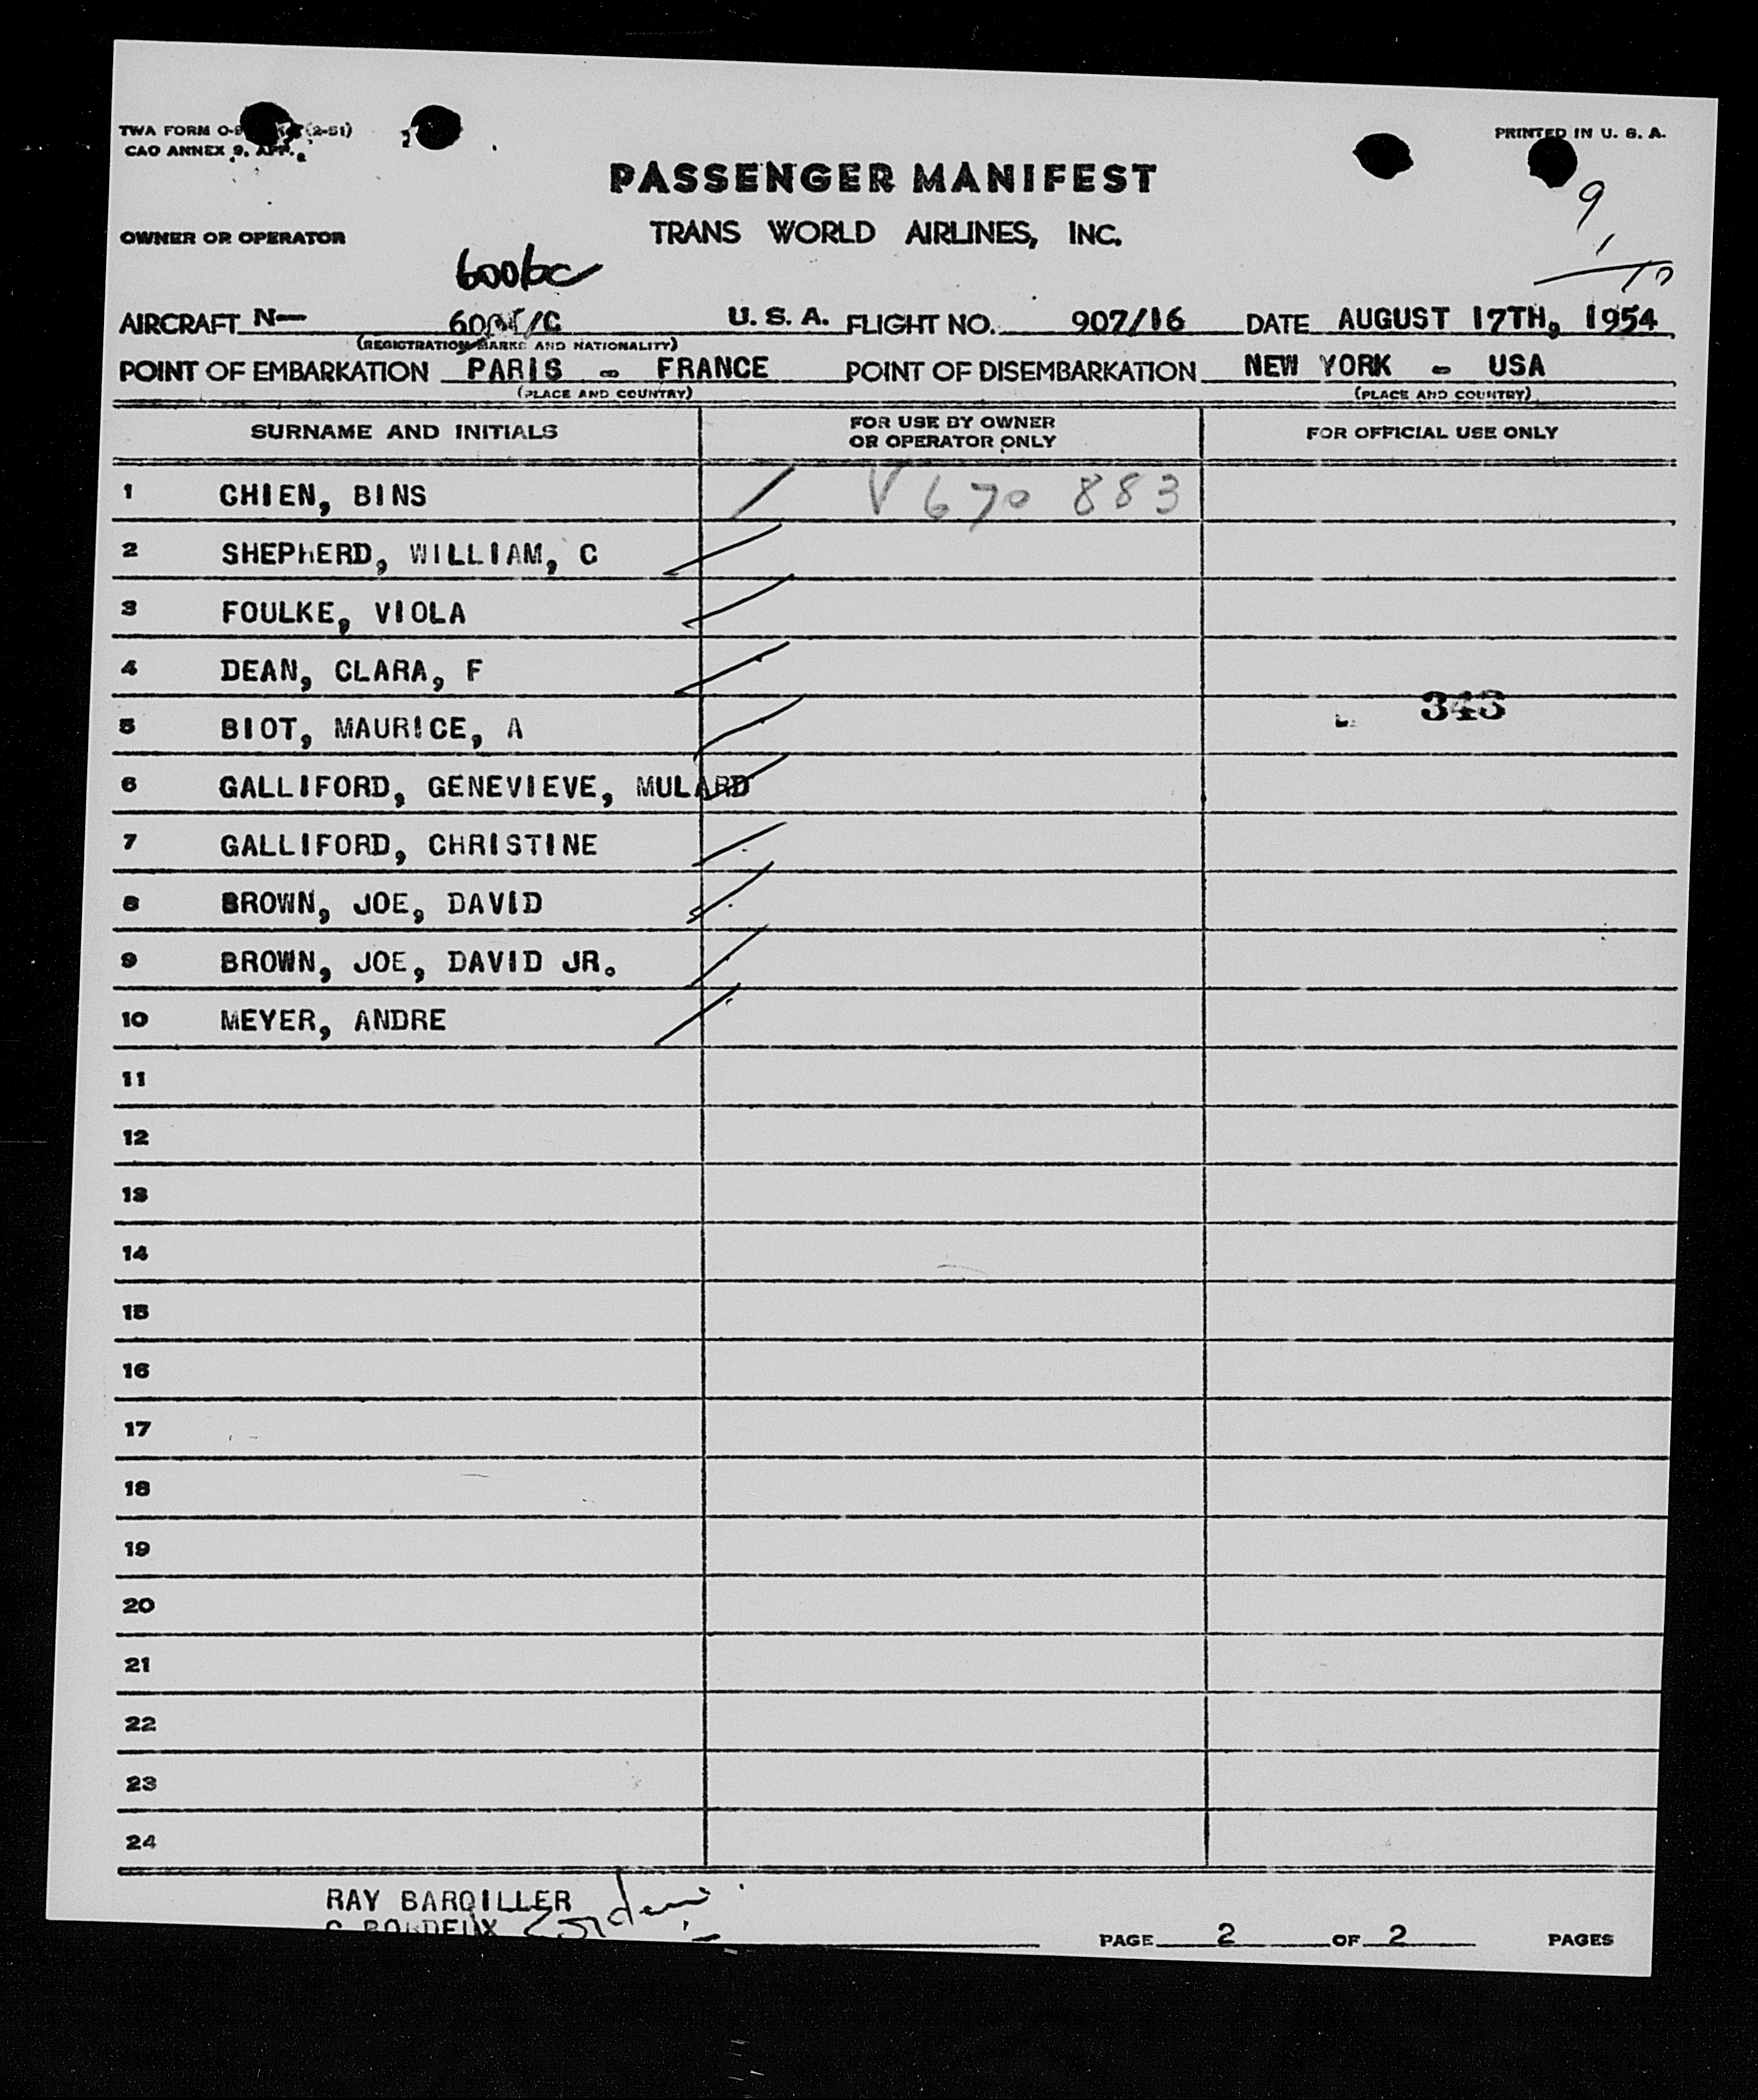 TWA FORM O-9 (2-51)
CAO ANNEX 9, APP. 2
PRINTED IN U. S. A.
PASSENGER MANIFEST
9
1
10
OWNER OR OPERATOR TRANS WORLD AIRLINES, INC.
6006c
AIRCRAFT N— /C U. S. A. FLIGHT NO. 907/16 DATE AUGUST 17TH, 1954
(REGISTRATION MARKS AND NATIONALITY)
POINT OF EMBARKATION PARIS - FRANCE POINT OF DISEMBARKATION NEW YORK - USA
(PLACE AND COUNTRY) (PLACE AND COUNTRY)
SURNAME AND INITIALS FOR USE BY OWNER OR OPERATOR ONLY FOR OFFICIAL USE ONLY
1 CHIEN, BINS V 670 883
2 SHEPHERD, WILLIAM, C
3 FOULKE, VIOLA
4 DEAN, CLARA, F
343
5 BIOT, MAURICE, A
6 GALLIFORD, GENEVIEVE, MULARD
7 GALLIFORD, CHRISTINE
8 BROWN, JOE, DAVID
9 BROWN, JOE, DAVID JR.
10 MEYER, ANDRE
11
12
13
14
15
16
17
18
19
20
21
22
23
24
RAY BARQILLER
PAGE 2 OF 2 PAGES